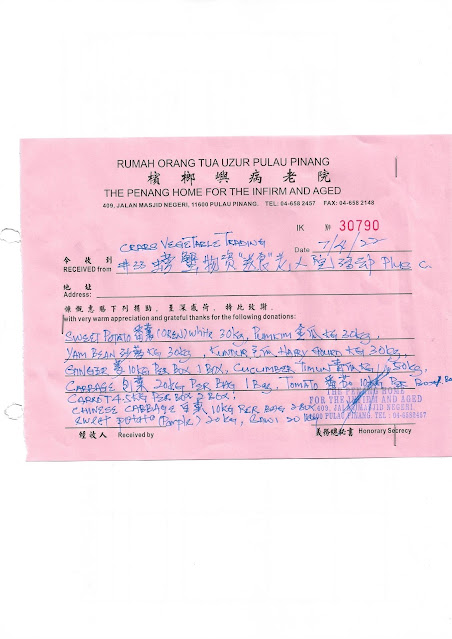 RUMAH ORANG TUA UZUR PULAU PINANG
檳榔嶼病老院
THE PENANG HOME FOR THE INFIRM AND AGED
409, JALAN MASJID NEGERI, 11600 PULAU PINANG. TEL: 04-658 2457 FAX: 04-658 2148
IK 30790
CRABS VEGETABLE TRADING
Date
今收到
RECEIVED from #33 螃蟹物資
地址
Address:
慷慨惠賜下列捐助,至深感荷,特此致謝.
with very warm appreciation and grateful thanks for the following donations:
SWEET POTATO 番薯 WHITE 30kg, PUMKIM 金瓜 kg 30kg,
YAM BEAN 沙葛 kg 30kg, KUNDUR HAIRY GOURD kg 30kg,
GINGER 10kg PER BOX 1 BOX, CUCUMBER TIMUN kg 50kg,
CABBAGE 20kg PER BAG 1 Bag, TOMATO 番茄 10kg PER BOX
CARROT 4.5kg PER BOX 2 BOX,
CHINESE CABBAGE 10kg PER BAG 2 BOX
SWEET POTATO (Purple) 20kg, SAWI 20
THE PENANG HOME
FOR THE INFIRM AND AGED
409, JALAN MASJID NEGERI
11600 PULAU PINANG. TEL: 04-6582457
領收人 Received by
義務總秘書 Honorary Secrecy